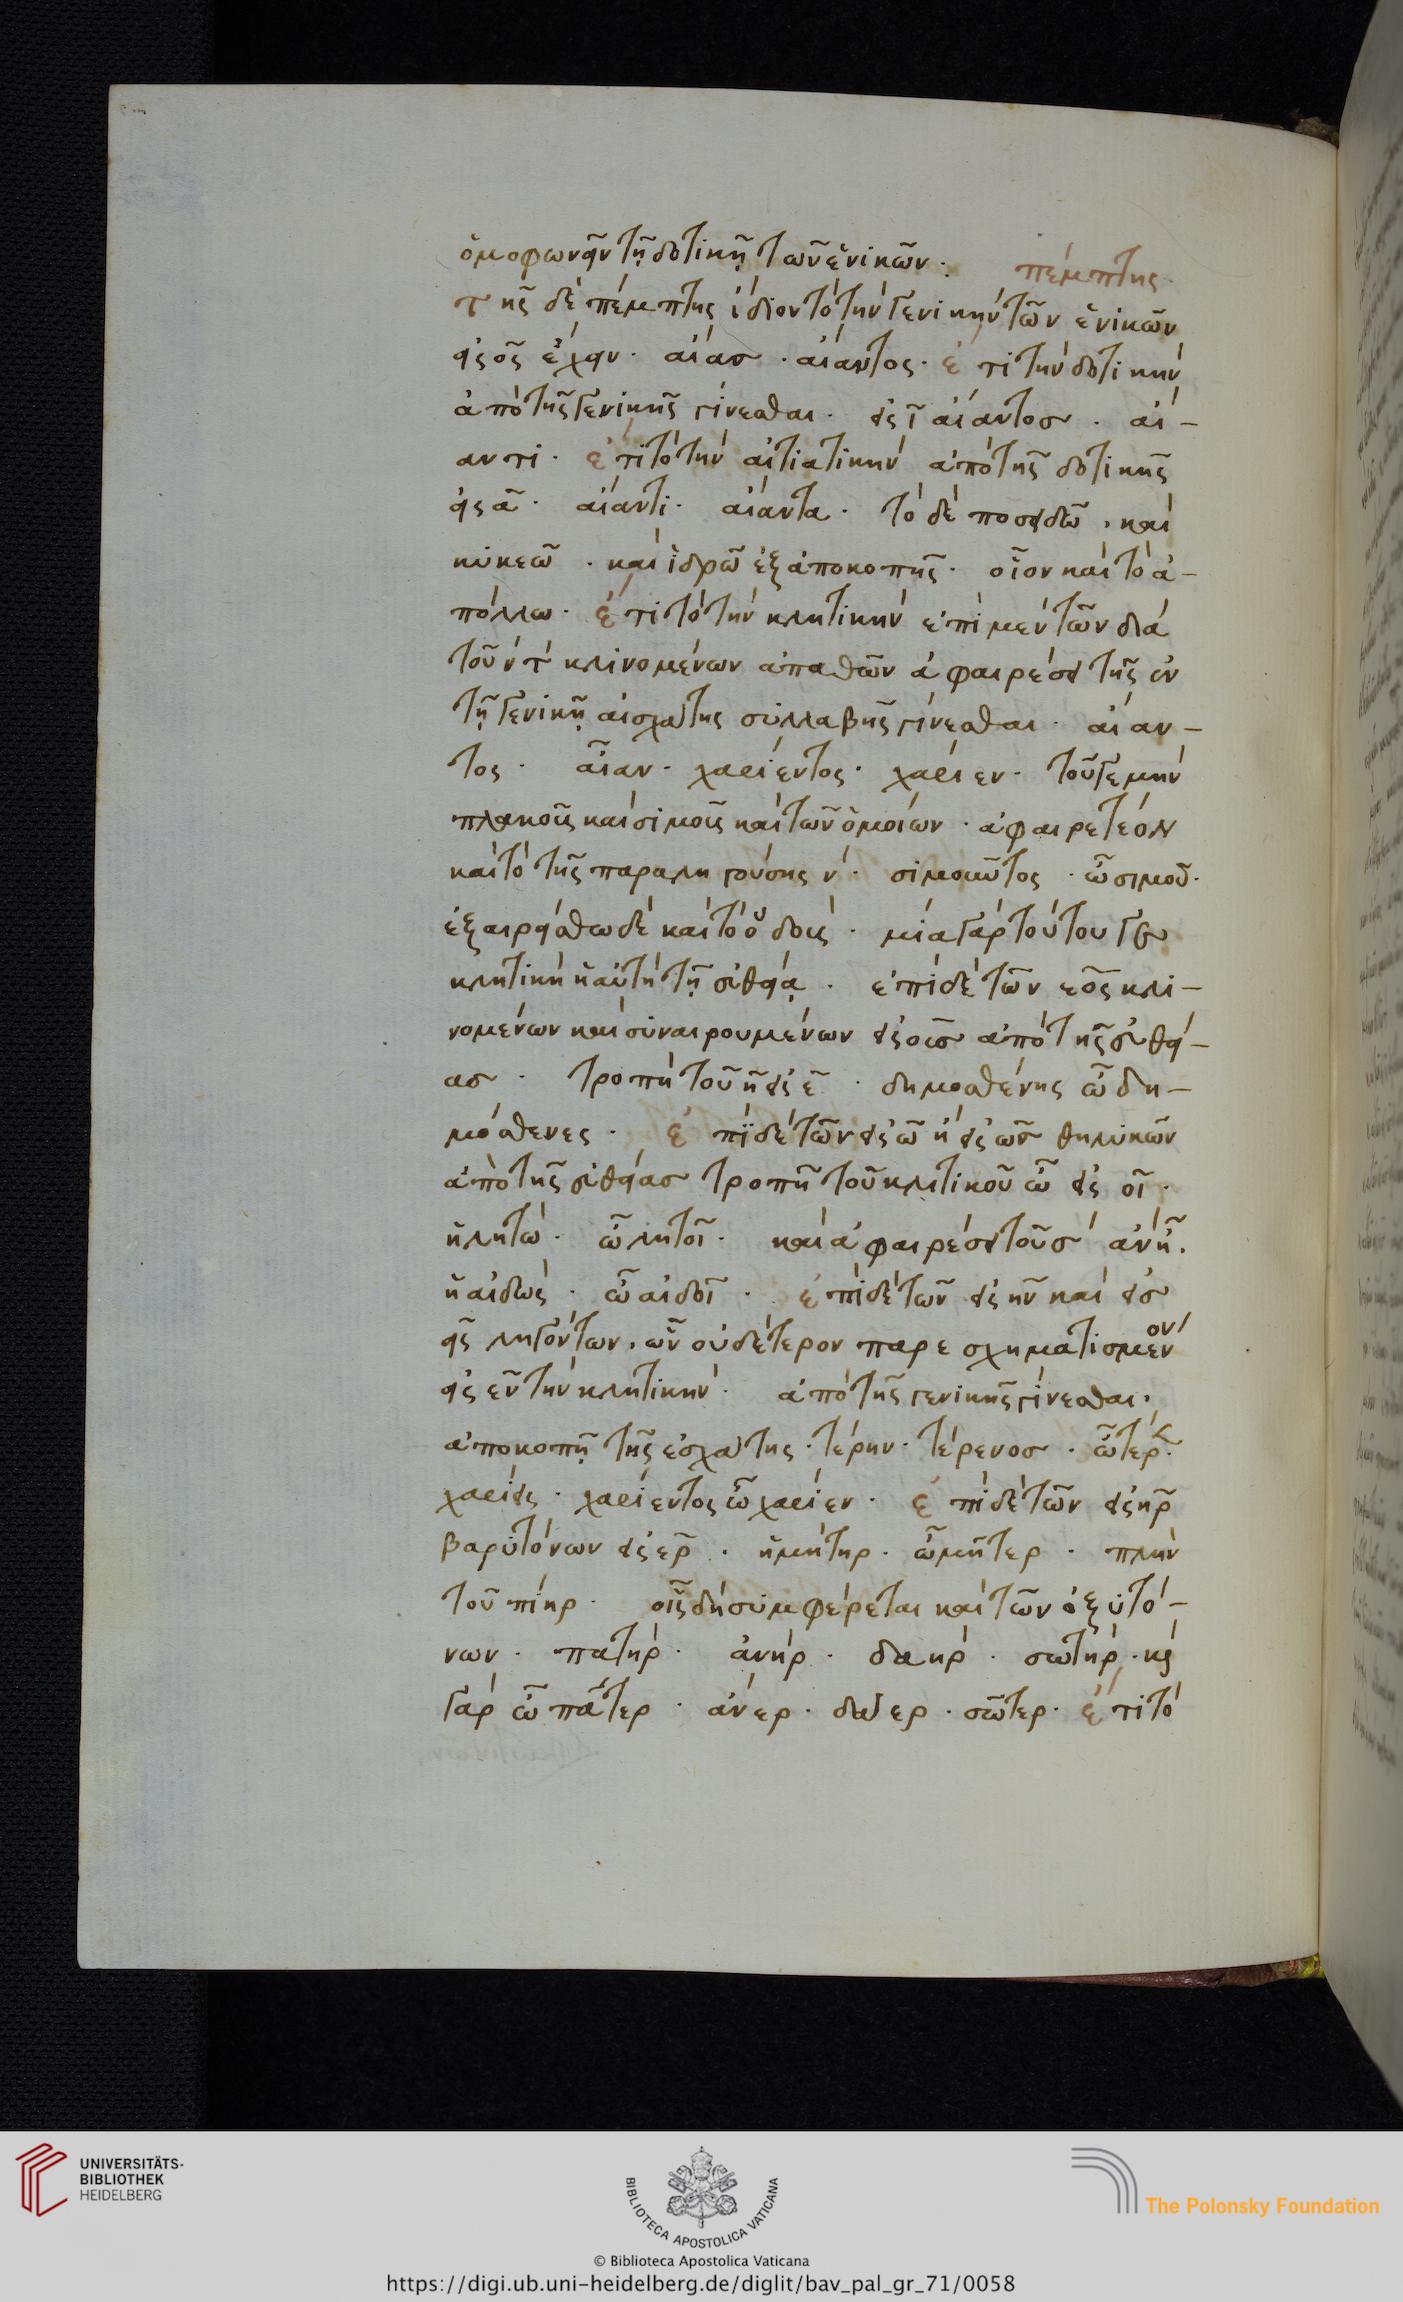 ὁμοφωνεῖν τῇ δοτικῇ τῶν ἑνικῶν. πέμπτης.
τῆς δὲ πέμπτης ἴδιον τὸ τὴν γενικὴν τῶν ἑνικῶν
εἰς ος ἔχειν. αἴας. αἴαντος. ἔτι τὴν δοτικὴν
ἀπὸ τῆς γενικῆς γίνεσθαι. εἰς ῖ αἴαντος. αἴ-
αντι. ἔτι τὸ τὴν αἰτιατικὴν ἀπὸ τῆς δοτικῆς
εἰς ᾶ. αἴαντι. αἴαντα. τὸ δὲ ποσειδῶ, καὶ
κυκεῶ. καὶ ἱδρῶ ἐξ ἀποκοπῆς. οἷον καὶ τὸ ἀ-
πόλλω. ἔτι τὸ τὴν κλητικὴν ἐπὶ μὲν τῶν διὰ
τοῦ ντ κλινομένων ἀπαθῶν ἀφαιρέσει τῆς ἐν
τῇ γενικῇ αἰσχάτης συλλαβῆς γίνεσθαι. αἴαν-
τος. αἶαν. χαρίεντος. χαρίεν. τοῦ γε μὴν
πλακοῦς καὶ σιμοῦς καὶ τῶν ὁμοίων. ἀφαιρετέον
καὶ τὸ τῆς παραληγούσης ν. σιμοῦντος. ὦ σιμοῦ.
ἐξαιρείσθω δὲ καὶ τὸ ὀδούς. μία γὰρ τούτου γε
κλητικὴ ἡ αὐτὴ τῇ εὐθείᾳ. ἐπὶ δὲ τῶν εος κλι-
νομένων καὶ συναιρουμένων εἰς ους ἀπὸ τῆς εὐθεί-
ας. τροπῇ τοῦ η εἰς ε. δημοσθένης ὦ δη-
μόσθενες. ἐπὶ δὲ τῶν εἰς ω ἢ εἰς ως θηλυκῶν
ἀπὸ τῆς εὐθείας τροπῇ τοῦ κλιτικοῦ ω εἰς οῖ.
ἡ λητώ. ὦ λητοῖ. καὶ ἀφαιρέσει τοῦ σ ἂν ᾖ.
ἡ αἰδώς. ὦ αἰδοῖ. ἐπὶ δὲ τῶν εἰς ην καὶ εἰς
εις ληγόντων, ὧν οὐδέτερον παρεσχηματισμένον
εἰς εν τὴν κλητικὴν. ἀπὸ τῆς γενικῆς γίνεσθαι,
ἀποκοπῇ τῆς ἐσχάτης. τέρην. τέρενος. ὦ τέρεν.
χαρίεις. χαρίεντος ὦ χαρίεν. ἐπὶ δὲ τῶν εἰς ηρ
βαρυτόνων εἰς ερ. ἡ μήτηρ. ὦ μῆτερ. πλὴν
τοῦ πίηρ. οἷς δὴ συμφέρεται καὶ τῶν ὀξυτό-
νων. πατήρ. ἀνήρ. δαήρ. σωτήρ. καὶ
γὰρ ὦ πάτερ. ἄνερ. δᾶερ. σῶτερ. ἔτι τὸ
UNIVERSITÄTS-
BIBLIOTHEK
HEIDELBERG
BIBLIOTECA APOSTOLICA VATICANA
© Biblioteca Apostolica Vaticana
The Polonsky Foundation
https://digi.ub.uni-heidelberg.de/diglit/bav_pal_gr_71/0058